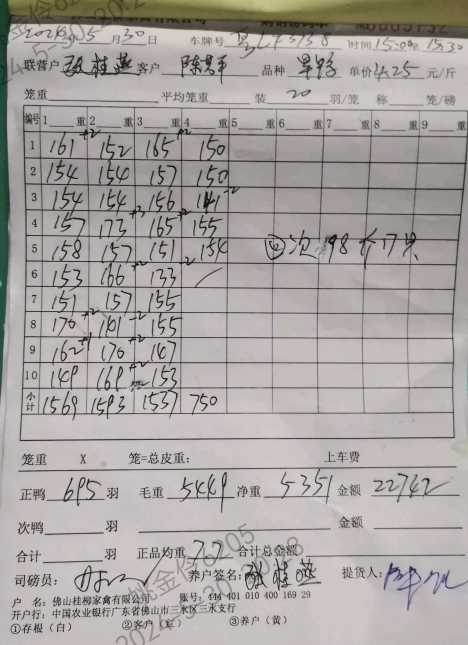 2024年5月30日 车牌号 时间 15:00 15:30
联营户 张桂燕 客户 品种 单价 4.25 元/斤
笼重 平均笼重 装 20 羽/笼 称 笼/磅
编号 1 重 2 重 3 重 4 重 5 重 6 重 7 重 8 重 9 重
1 161 +2 152 165 +2 150
2 154 154 157 150
3 154 154 156 141 -2
4 157 173 +3 165 +2 155
5 158 157 151 154 次 198斤17只
6 153 166 +2 133 -2
7 151 157 155
8 170 +2 161 -2 155
9 162 +1 170 +2 147
10 149 169 +2 153
小计 1569 1593 1537 750
笼重 X 笼=总皮重: 上车费
正鸭 695 羽 毛重 5449 净重 5351 金额 22742
次鸭 羽 金额
合计 羽 正品均重 7.7 合计总金额
司磅员: 养户签名: 张桂燕 提货人:
户 名: 佛山桂柳家禽有限公司 账号: 444 401 010 400 169 29
开户行: 中国农业银行广东省佛山市三水区三水支行
①存根（白） ②客户（红） ③养户（黄）